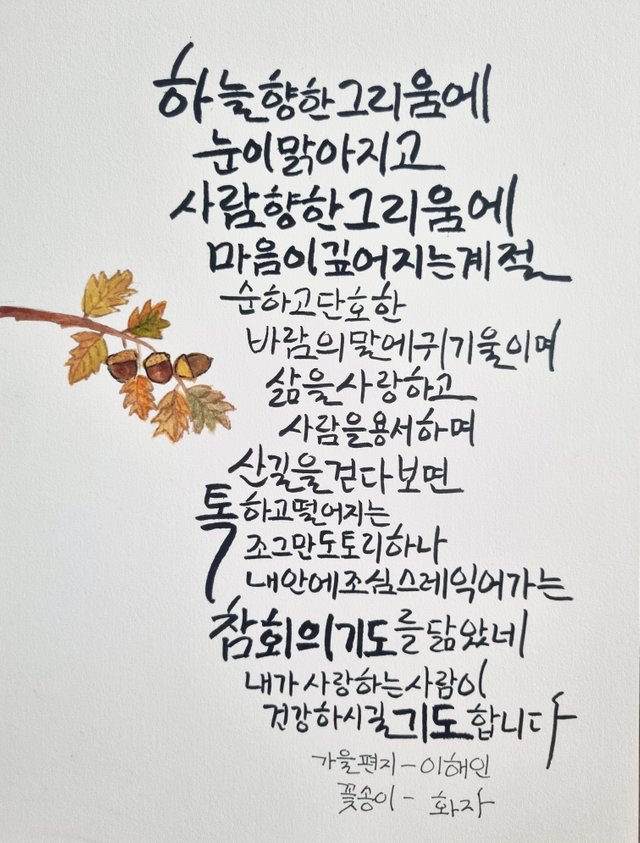 하늘향한그리움에
눈이맑아지고
사람향한그리움에
마음이깊어지는계절
순하고단호한
바람의말에귀기울이며
삶을사랑하고
사람을용서하며
산길을걷다보면
톡하고떨어지는
조그만도토리하나
내안에조심스레익어가는
참회의기도를닮았네
내가사랑하는사람이
건강하시길기도합니다
가을편지-이해인
꽃송이- 화자